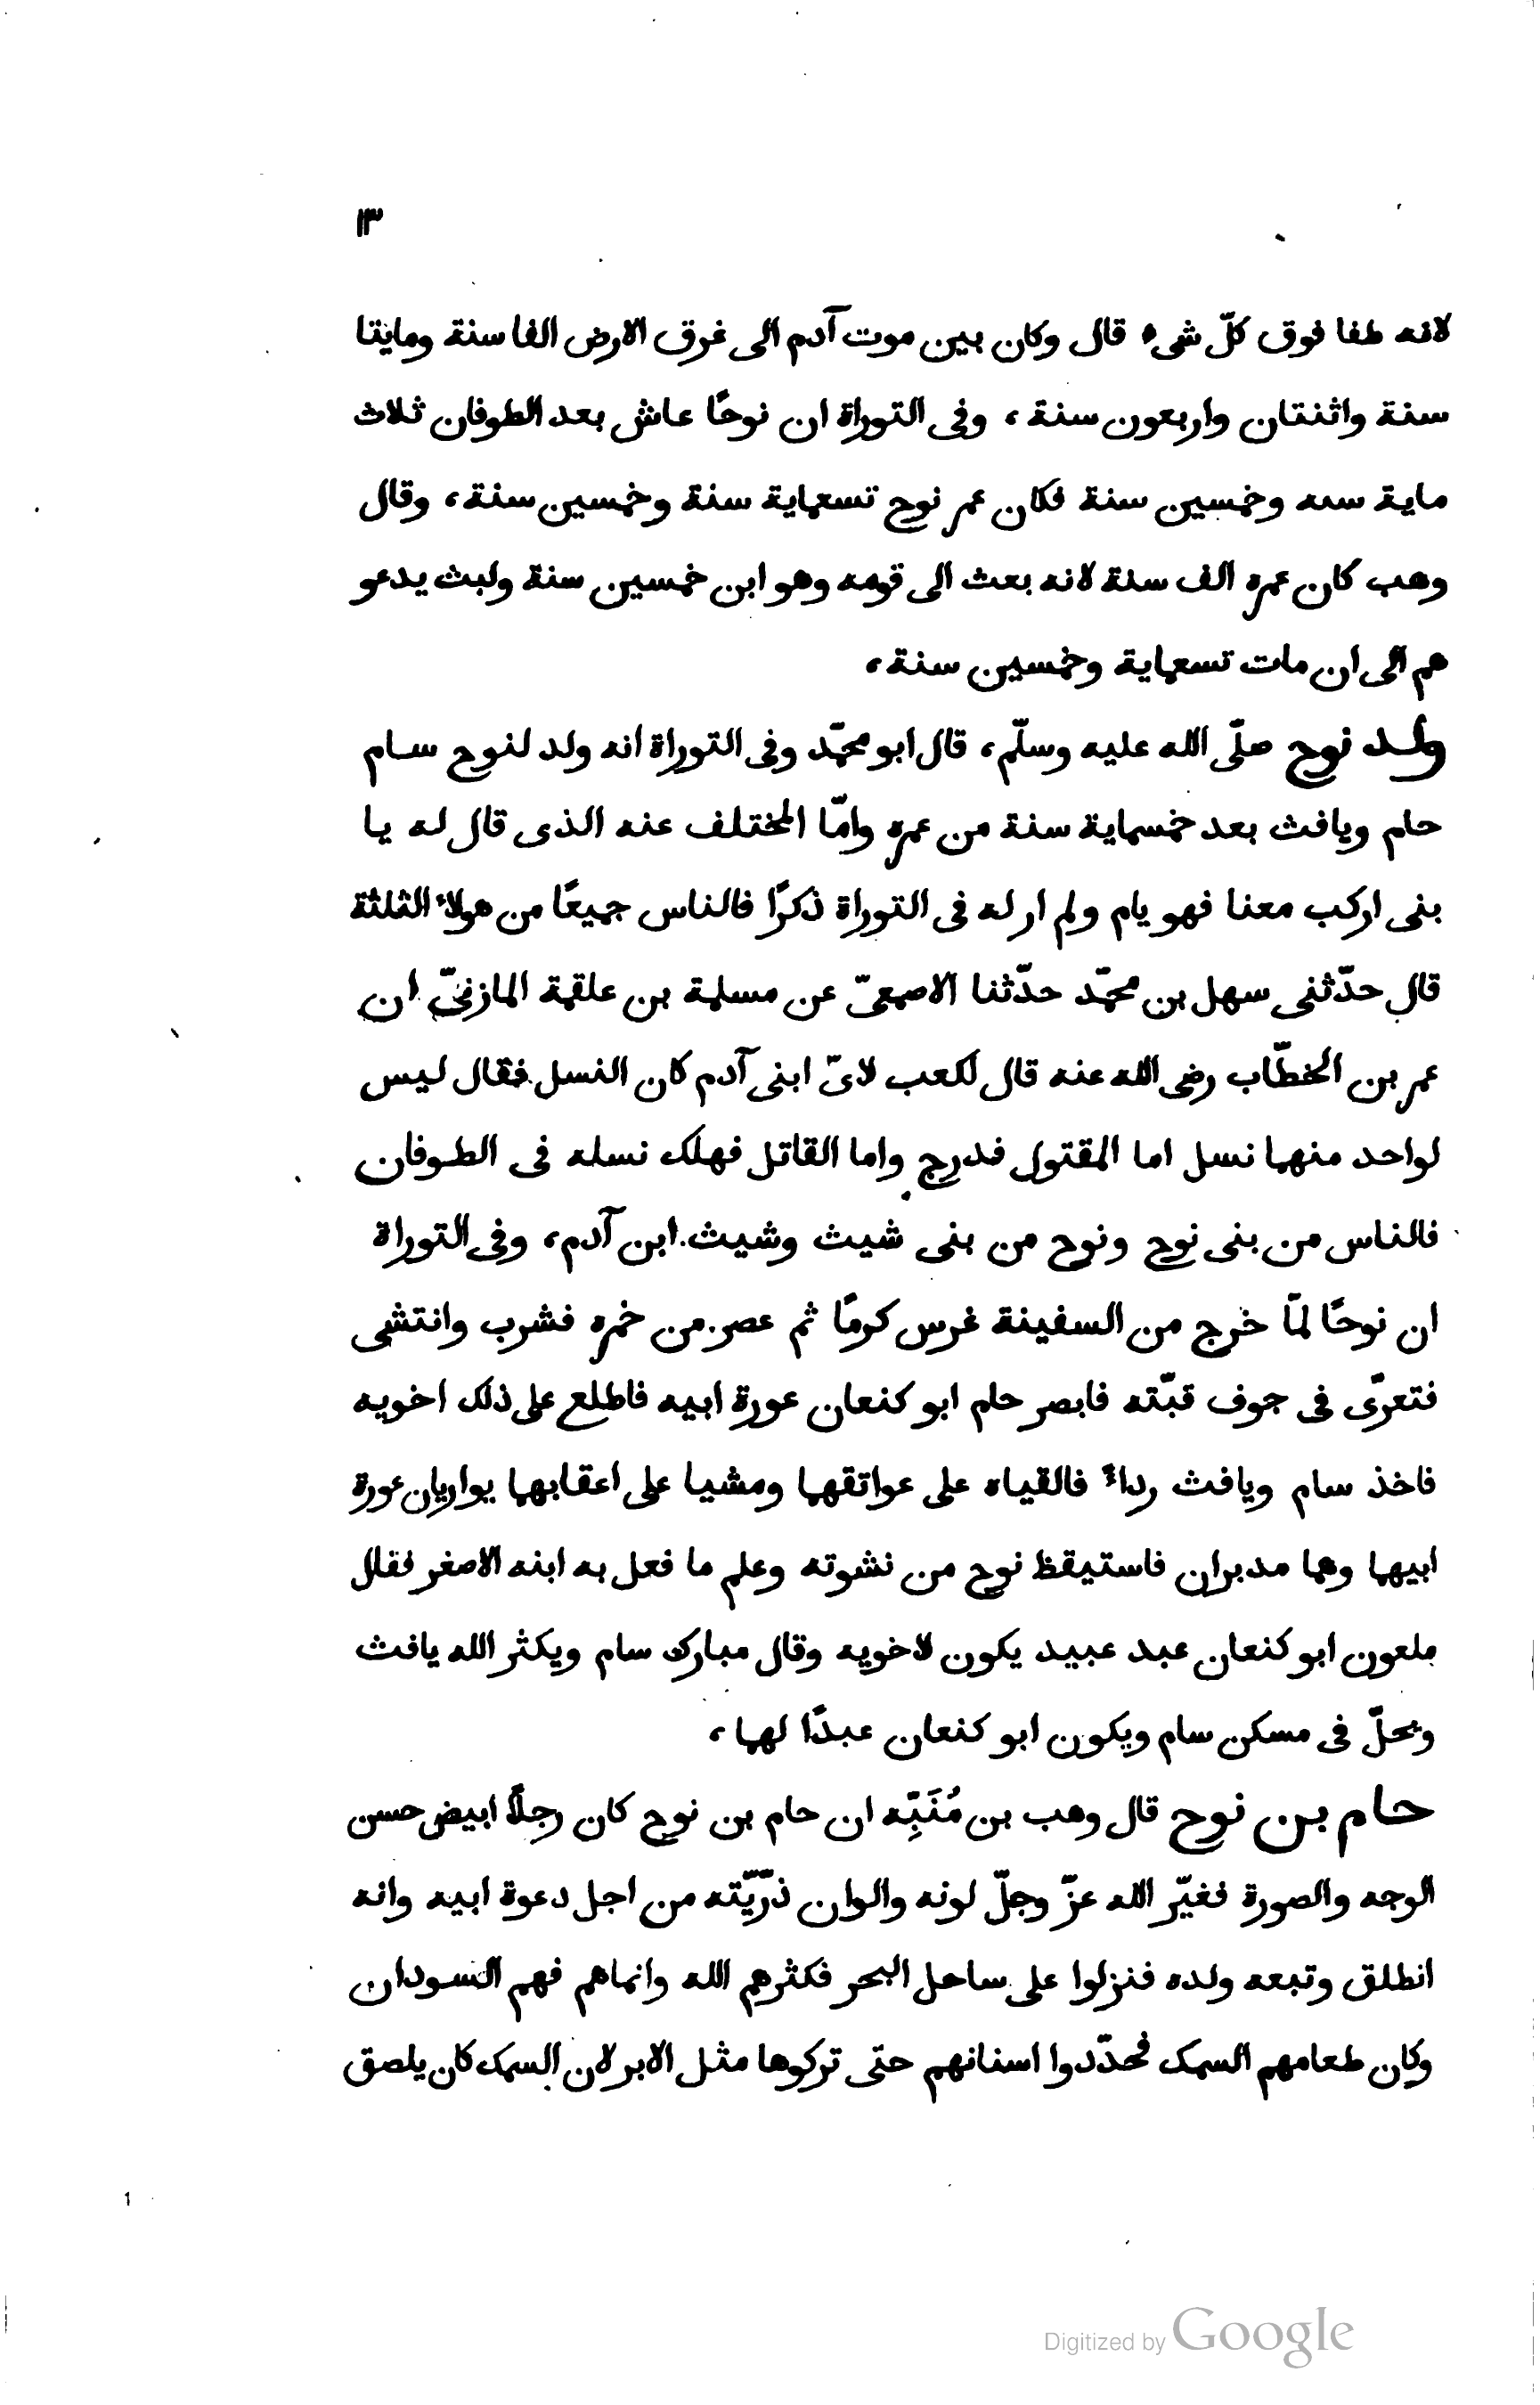 ١٣
لانه طفا فوق كلّ شىء قال وكان بين موت آدم الى غرق الارض الفا سنة ومايتا
سنة واثنتان واربعون سنة، وفى التوراة ان نوحًا عاش بعد الطوفان ثلاث
ماية سنه وخمسين سنة فكان عمر نوح تسعماية سنة وخمسين سنة، وقال
وهب كان عمره الف سنة لانه بعث الى قومه وهو ابن خمسين سنة ولبث يدعو
هم الى ان مات تسعماية وخمسين سنة،
ولد نوح صلّى الله عليه وسلّم، قال ابو محمّد وفى التوراة انه ولد لنوح سام
حام ويافث بعد خمسماية سنة من عمره وامّا المختلف عنه الذى قال له يا
بنى اركب معنا فهو يام ولم ار له فى التوراة ذكرًا فالناس جميعًا من هولاء الثلثة
قال حدّثنى سهل بن محمّد حدّثنا الاصمعىّ عن مسلمة بن علقمة المازنىّ ان
عمر بن الخطّاب رضى الله عنه قال لكعب لاىّ ابنى آدم كان النسل فقال ليس
لواحد منهما نسل اما المقتول فدرج واما القاتل فهلك نسله فى الطوفان
فالناس من بنى نوح ونوح من بنى شيث وشيث ابن آدم، وفى التوراة
ان نوحًا لمّا خرج من السفينة غرس كرمًا ثم عصر من خمره فشرب وانتشى
فتعرّى فى جوف قبّته فابصر حام ابو كنعان عورة ابيه فاطلع على ذلك اخويه
فاخذ سام ويافث رداءً فالقياه على عواتقهما ومشيا على اعقابهما يواريان عورة
ابيهما وهما مدبران فاستيقظ نوح من نشوته وعلم ما فعل به ابنه الاصغر فقال
ملعون ابو كنعان عبد عبيد يكون لاخويه وقال مبارك سام ويكثر الله يافث
ويحلّ فى مسكن سام ويكون ابو كنعان عبدًا لهما،
حام بن نوح قال وهب بن مُنَبِّه ان حام بن نوح كان رجلًا ابيض حسن
الوجه والصورة فغيّر الله عزّ وجلّ لونه والوان ذرّيّته من اجل دعوة ابيه وانه
انطلق وتبعه ولده فنزلوا على ساحل البحر فكثرهم الله وانماهم فهم السودان
وكان طعامهم السمك فحدّدوا اسنانهم حتى تركوها مثل الابر لان السمك كان يلصق
1
Digitized by Google